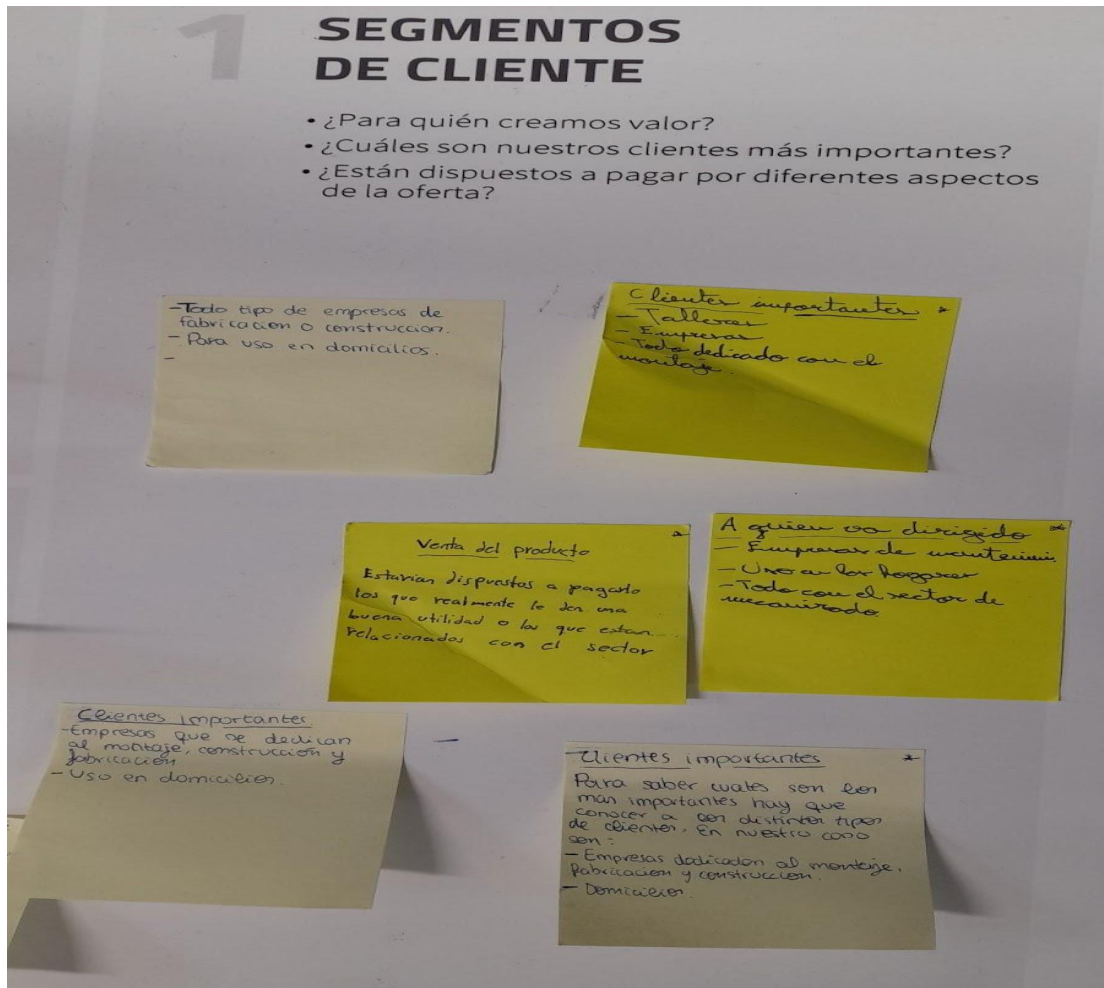 1
SEGMENTOS
DE CLIENTE
• ¿Para quién creamos valor?
• ¿Cuáles son nuestros clientes más importantes?
• ¿Están dispuestos a pagar por diferentes aspectos
de la oferta?
-Todo tipo de empresas de
fabricacion o construccion.
- Para uso en domicilios.
-
Clientes importantes *
- Talleres
- Empresas
- Todo dedicado con el
montaje.
Venta del producto *
Estarian dispuestos a pagarlo
los que realmente le den una
buena utilidad o los que estan
relacionados con el sector
A quien va dirigido *
- Empresas de mantenimi.
- Uso en los hogares
- Todo con el sector de
mecanizado.
Clientes importantes.
-Empresas que se dedican
al montaje, construcción y
fabricación
- Uso en domicilios.
Clientes importantes *
Para saber cuales son los
mas importantes hay que
conocer a los distintos tipos
de clientes. En nuestro caso
son:
- Empresas dedicadas al montaje,
fabricacion y construccion.
- Domicilios.